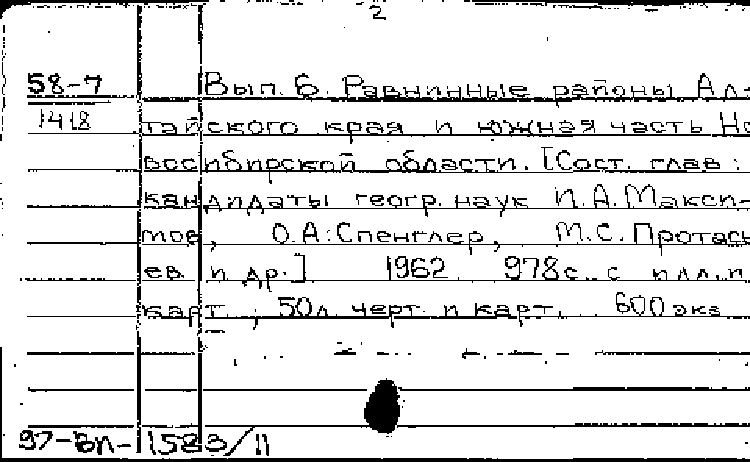 2
58-7 Вып. 6. Равнинные районы Ал-
1418 тайского края и южная часть Но
восибирской области. [Сост. глав:
кандидаты геогр. наук И.А. Макси-
мов, О.А. Спенглер, М.С. Протась
ев и др.] 1962 978с. с илл. и
карт.; 50л. черт. и карт. 600 экз
97-Вл-1583/11